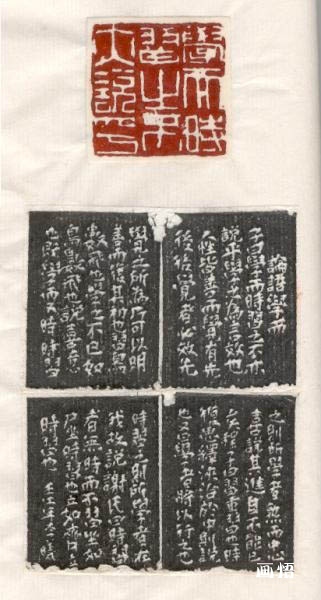 學而時
習之不
亦說乎
論語學而
子曰學而時習之不亦
說乎學之為言效也
人性皆善而覺有先
後後覺者必效先
覺之所為乃可以明
善而復其初也習鳥
數飛也學之不已如
鳥數飛也說喜意
也既學而又時時習
之則所學者熟而中心
喜說其進自不能已
矣程子曰習重習也時
復思繹浹洽於中則說
也又曰學者將以行之也
時習之則所學者在
我故說謝氏曰時習
者無時而不習坐如
尸坐時習也立如齊立
時習也
画悟